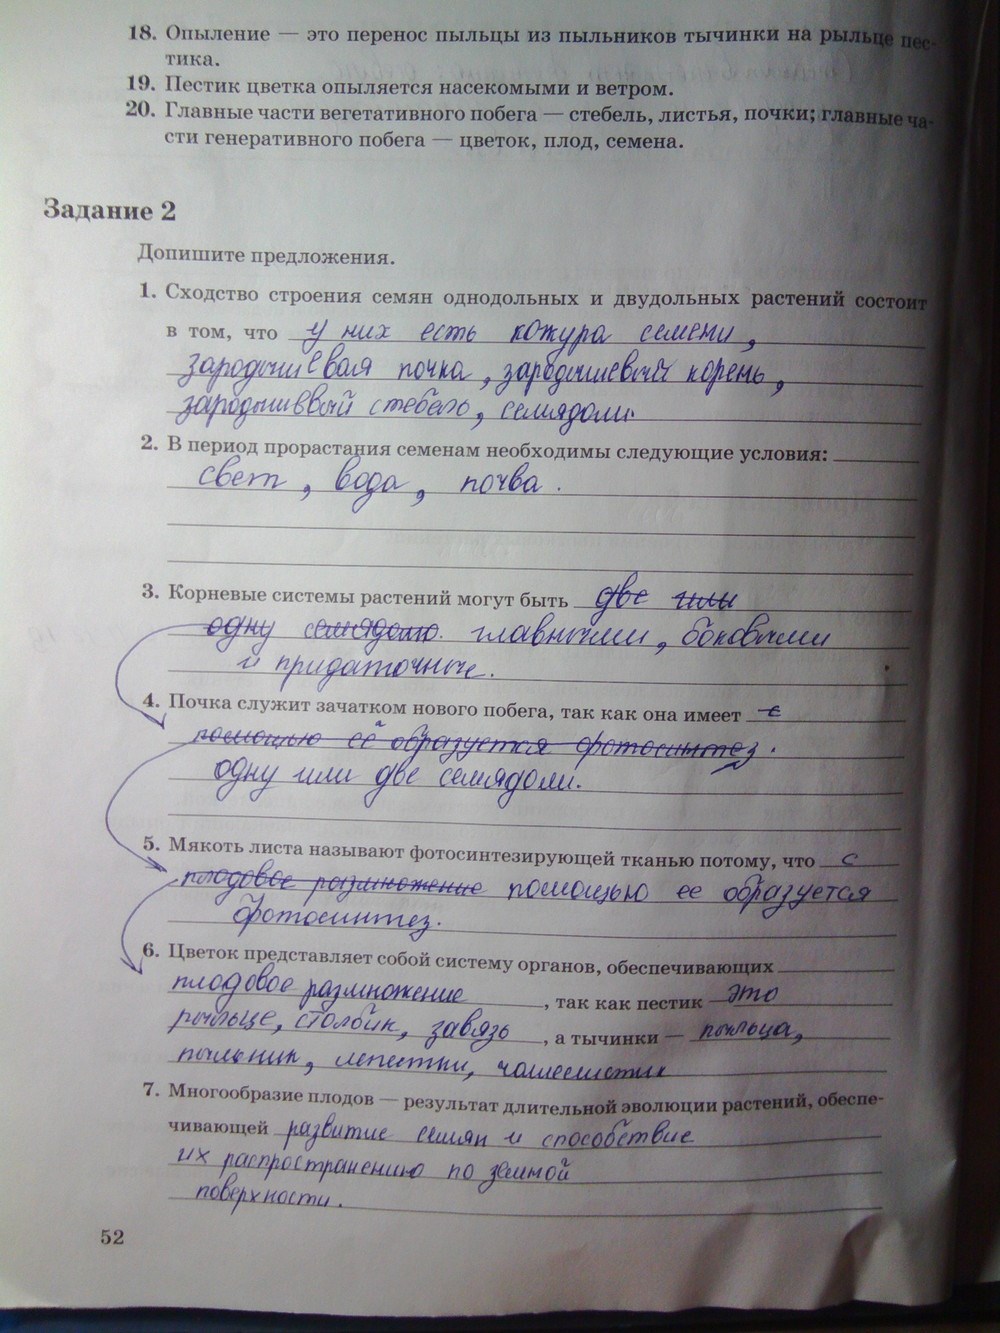 18. Опыление — это перенос пыльцы из пыльников тычинки на рыльце пес-
тика.
19. Пестик цветка опыляется насекомыми и ветром.
20. Главные части вегетативного побега — стебель, листья, почки; главные ча-
сти генеративного побега — цветок, плод, семена.
Задание 2
Допишите предложения.
1. Сходство строения семян однодольных и двудольных растений состоит
в том, что у них есть кожура семени,
зародышевая почка, зародышевый корень,
зародышввый стебель, семядоли.
2. В период прорастания семенам необходимы следующие условия:
свет, вода, почва.
3. Корневые системы растений могут быть две или
одну семядолю. главными, боковыми
и придаточные.
4. Почка служит зачатком нового побега, так как она имеет с
помощью её образуется фотосинтез.
одну или две семядоли.
5. Мякоть листа называют фотосинтезирующей тканью потому, что с
плодовое размножение помощью ее образуется
фотосинтез.
6. Цветок представляет собой систему органов, обеспечивающих
плодовое размножение, так как пестик это
рыльце, столбик, завязь, а тычинки — пыльца,
пыльник, лепестки, чашелистик
7. Многообразие плодов — результат длительной эволюции растений, обеспе-
чивающей развитие семян и способствие
их распространению по земной
поверхности.
52